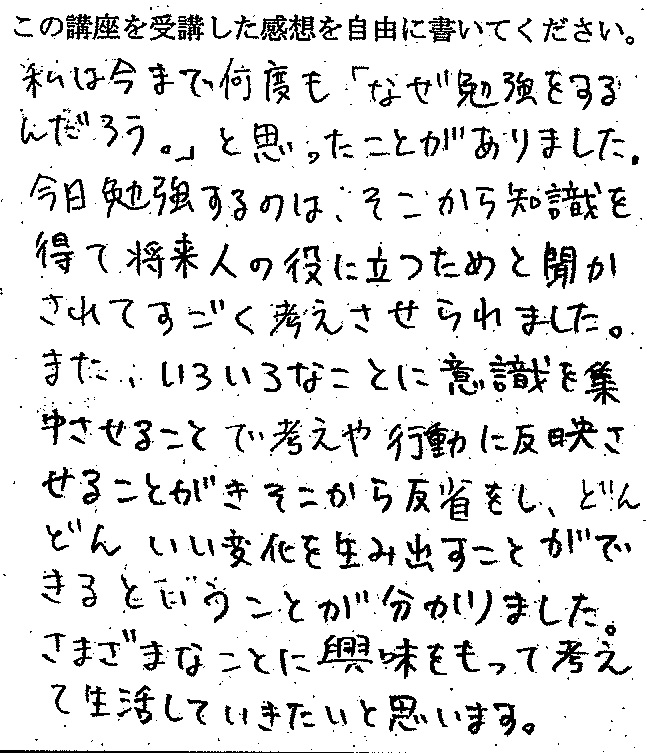 この講座を受講した感想を自由に書いてください。
私は今まで何度も「なぜ勉強をする
んだろう。」と思ったことがありました。
今日勉強するのは、そこから知識を
得て将来人の役に立つためと聞か
されてすごく考えさせられました。
また、いろいろなことに意識を集
中させることで考えや行動に反映さ
せることができそこから反省をし、どん
どんいい変化を生み出すことがで
きるということが分かりました。
さまざまなことに興味をもって考え
て生活していきたいと思います。